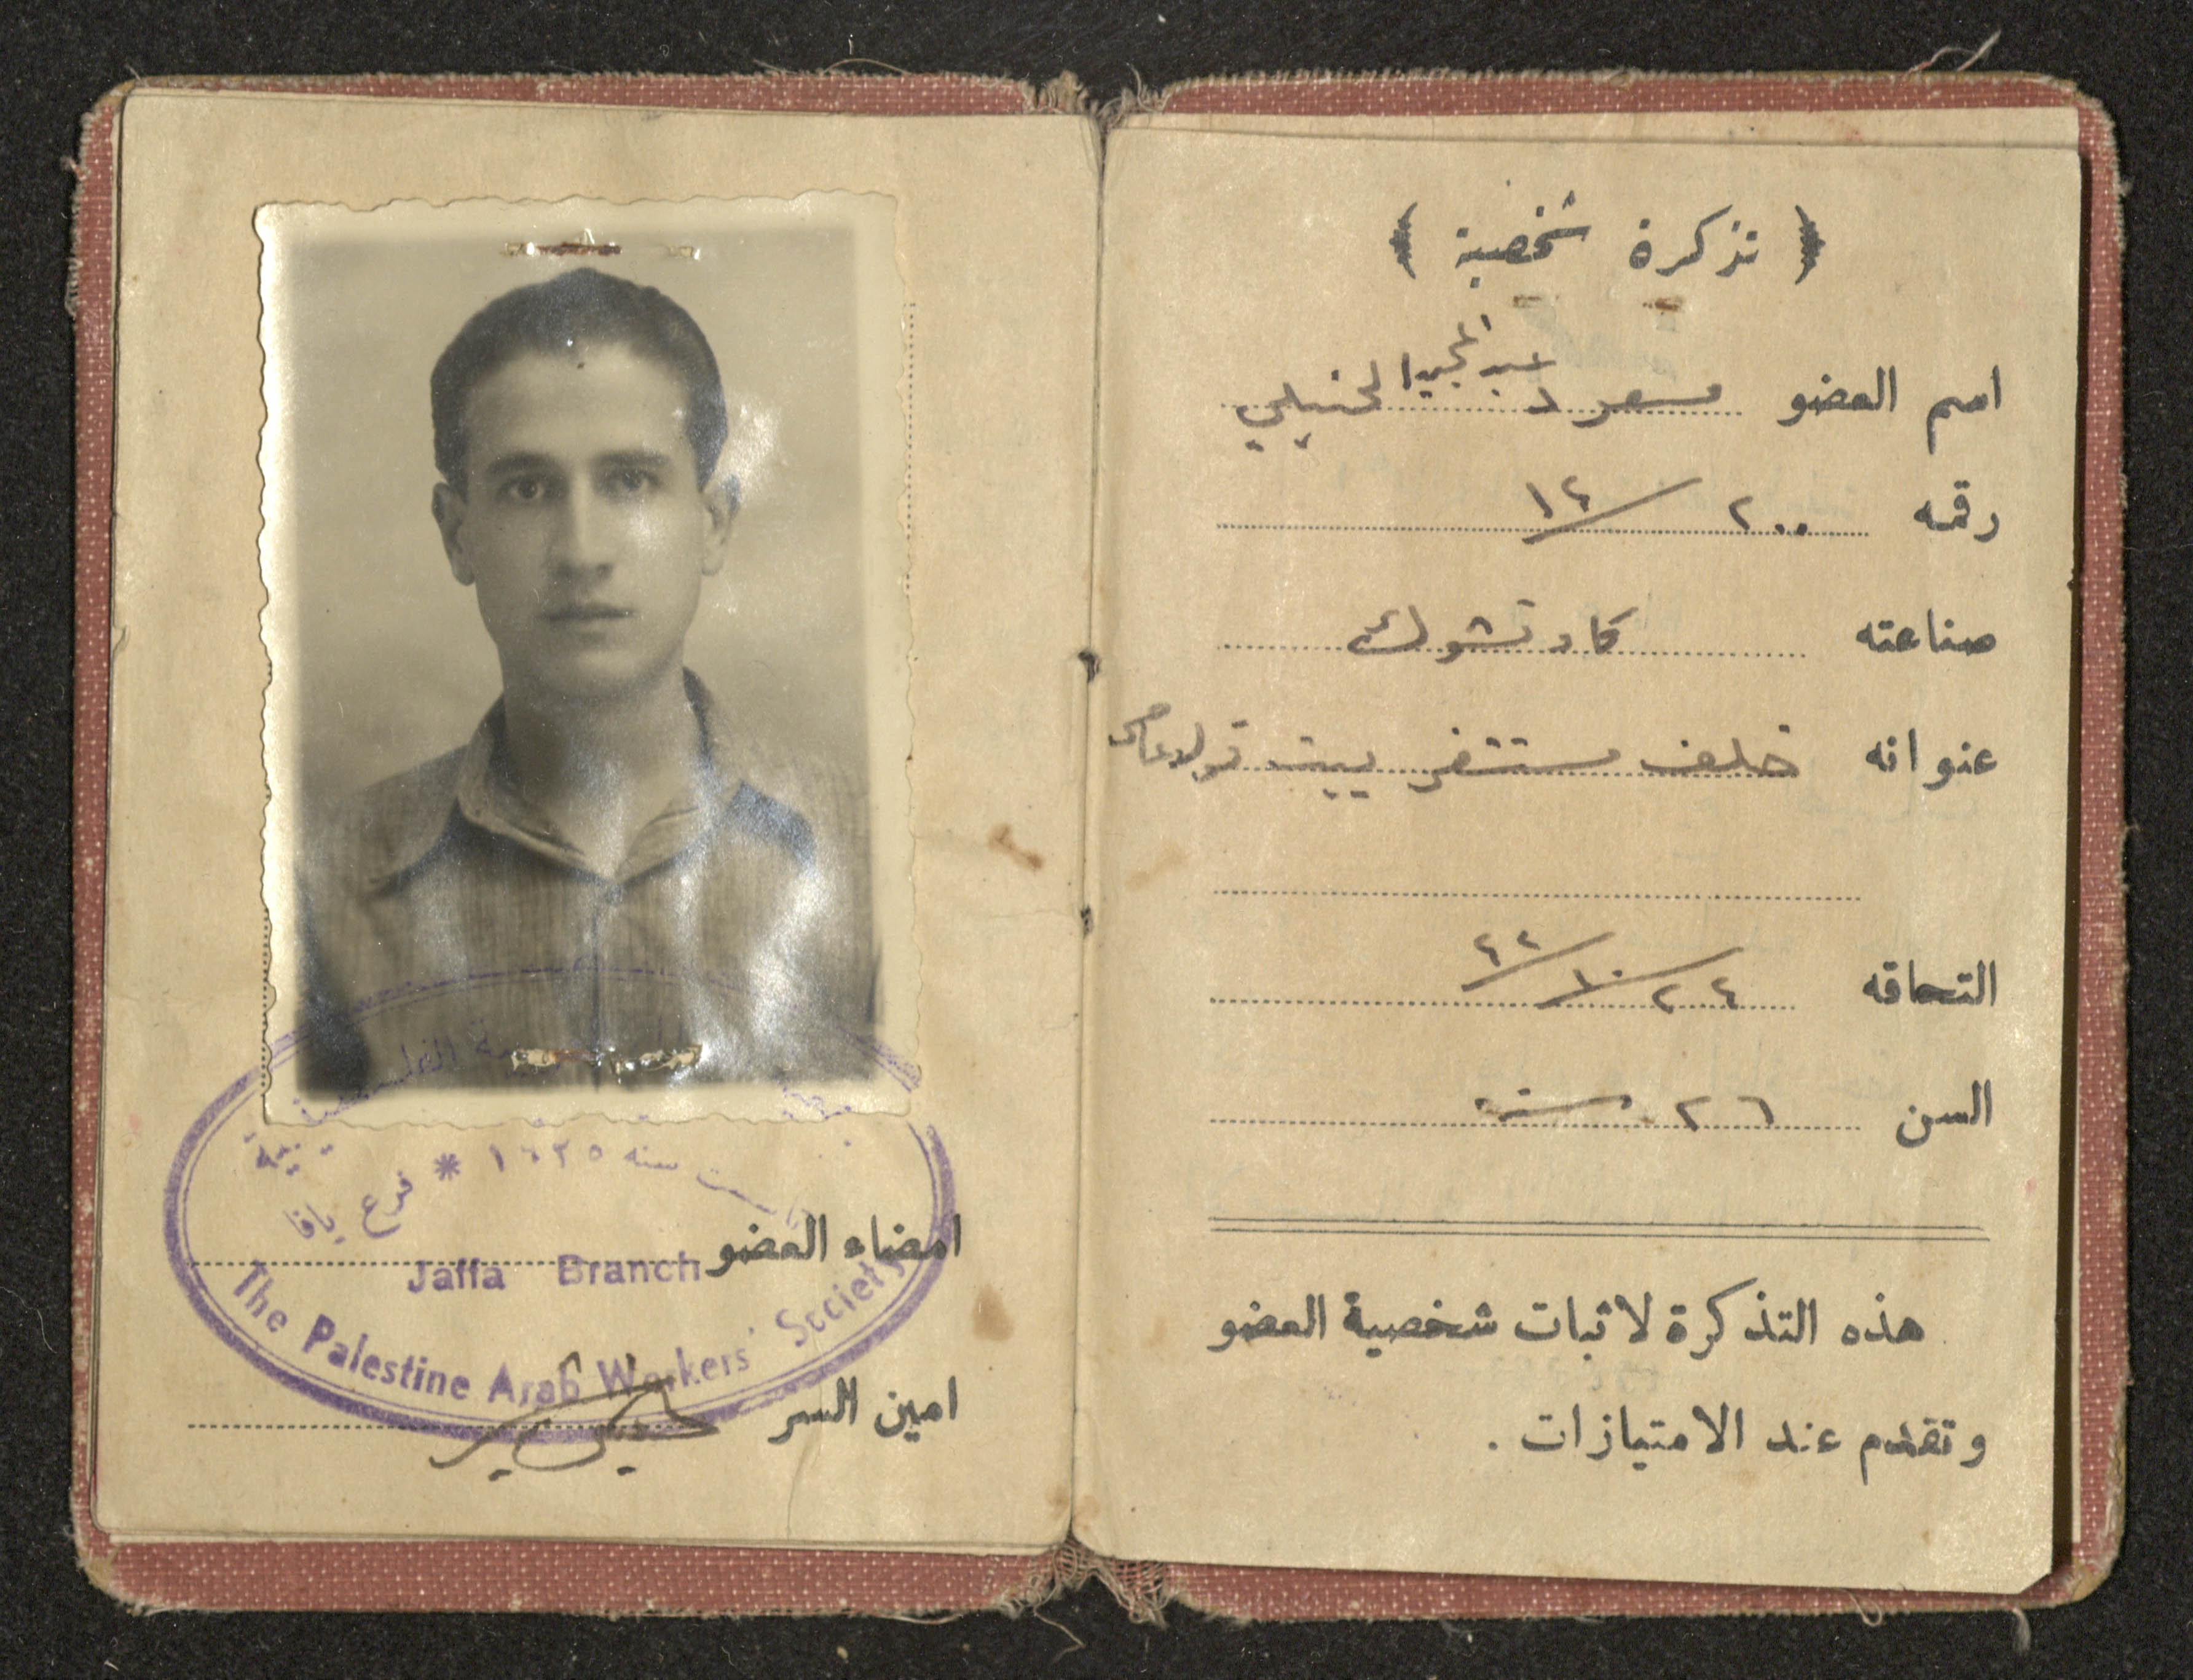 ﴿ تذكرة شخصية ﴾
اسم العضو مسعود عبد المجيد الحنبلي
رقمه ٢٠٠ / ١٤
صناعته كاوتشوك
عنوانه خلف بيت
التحاقه ٢٤ / ١٠ / ٤٢
السن ٢٦ سنة
هذه التذكرة لاثبات شخصية العضو
وتقدم عند الامتيازات .
سنه ١٩٢٥ * فرع يافا
امضاء العضو
Jaffa Branch
The Palestine Arab Workers' Society
امين السر